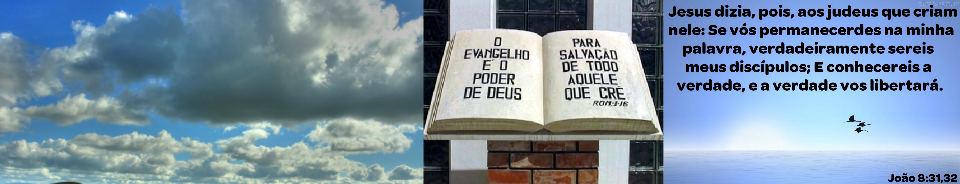 O
EVANGELHO
E O
PODER
DE DEUS
PARA
SALVAÇÃO
DE TODO
AQUELE
QUE CRÊ
ROM·1·16
Jesus dizia, pois, aos judeus que criam
nele: Se vós permanecerdes na minha
palavra, verdadeiramente sereis
meus discípulos; E conhecereis a
verdade, e a verdade vos libertará.
João 8:31,32